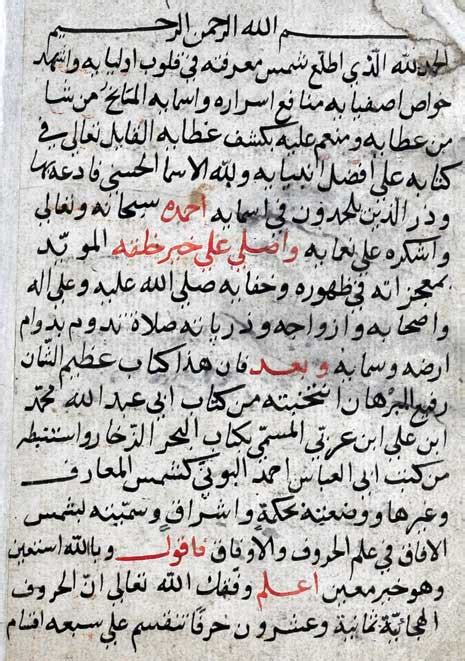 بسم الله الرحمن الرحيم
الحمد لله الذي اطلع شمس معرفته في قلوب اوليايه واشهد
خواص اصفيايه منافع اسراره واسمايه المانح من شا
من عطايه ومنعم عليه بكشف غطايه القايل تعالى في
كتابه على افضل انبيايه ولله الاسما الحسنى فادعه بها
وذر الذين يلحدون في اسمايه احمده سبحانه وتعالى
واشكره على نعمايه واصلي على خير خلقه المويد
بمعجزاته في ظهوره وخفايه صلى الله عليه وعلى اله
واصحابه وازواجه وذرياته صلاة تدوم بدوام
ارضه وسمايه وبعد فان هذا كتاب عظيم الشان
رفيع البرهان انتخبته من كتاب ابي عبد الله محمد
ابن علي ابن عربي المسمى بكتاب البحر الزخار واستنبطه
من كتب ابي العباس احمد البوني كشمس المعارف
وغيرها ووضعته بحكمة واشراق وسميته بشمس
الافاق في علم الحروف والاوفاق فاقول وبالله استعين
وهو خير معين اعلم وفقك الله تعالى ان الحروف
الهجائية ثمانية وعشرون حرفا تنقسم على سبعه اقسام